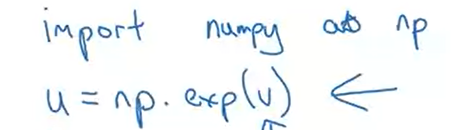 import numpy as np
u = np.exp(v)